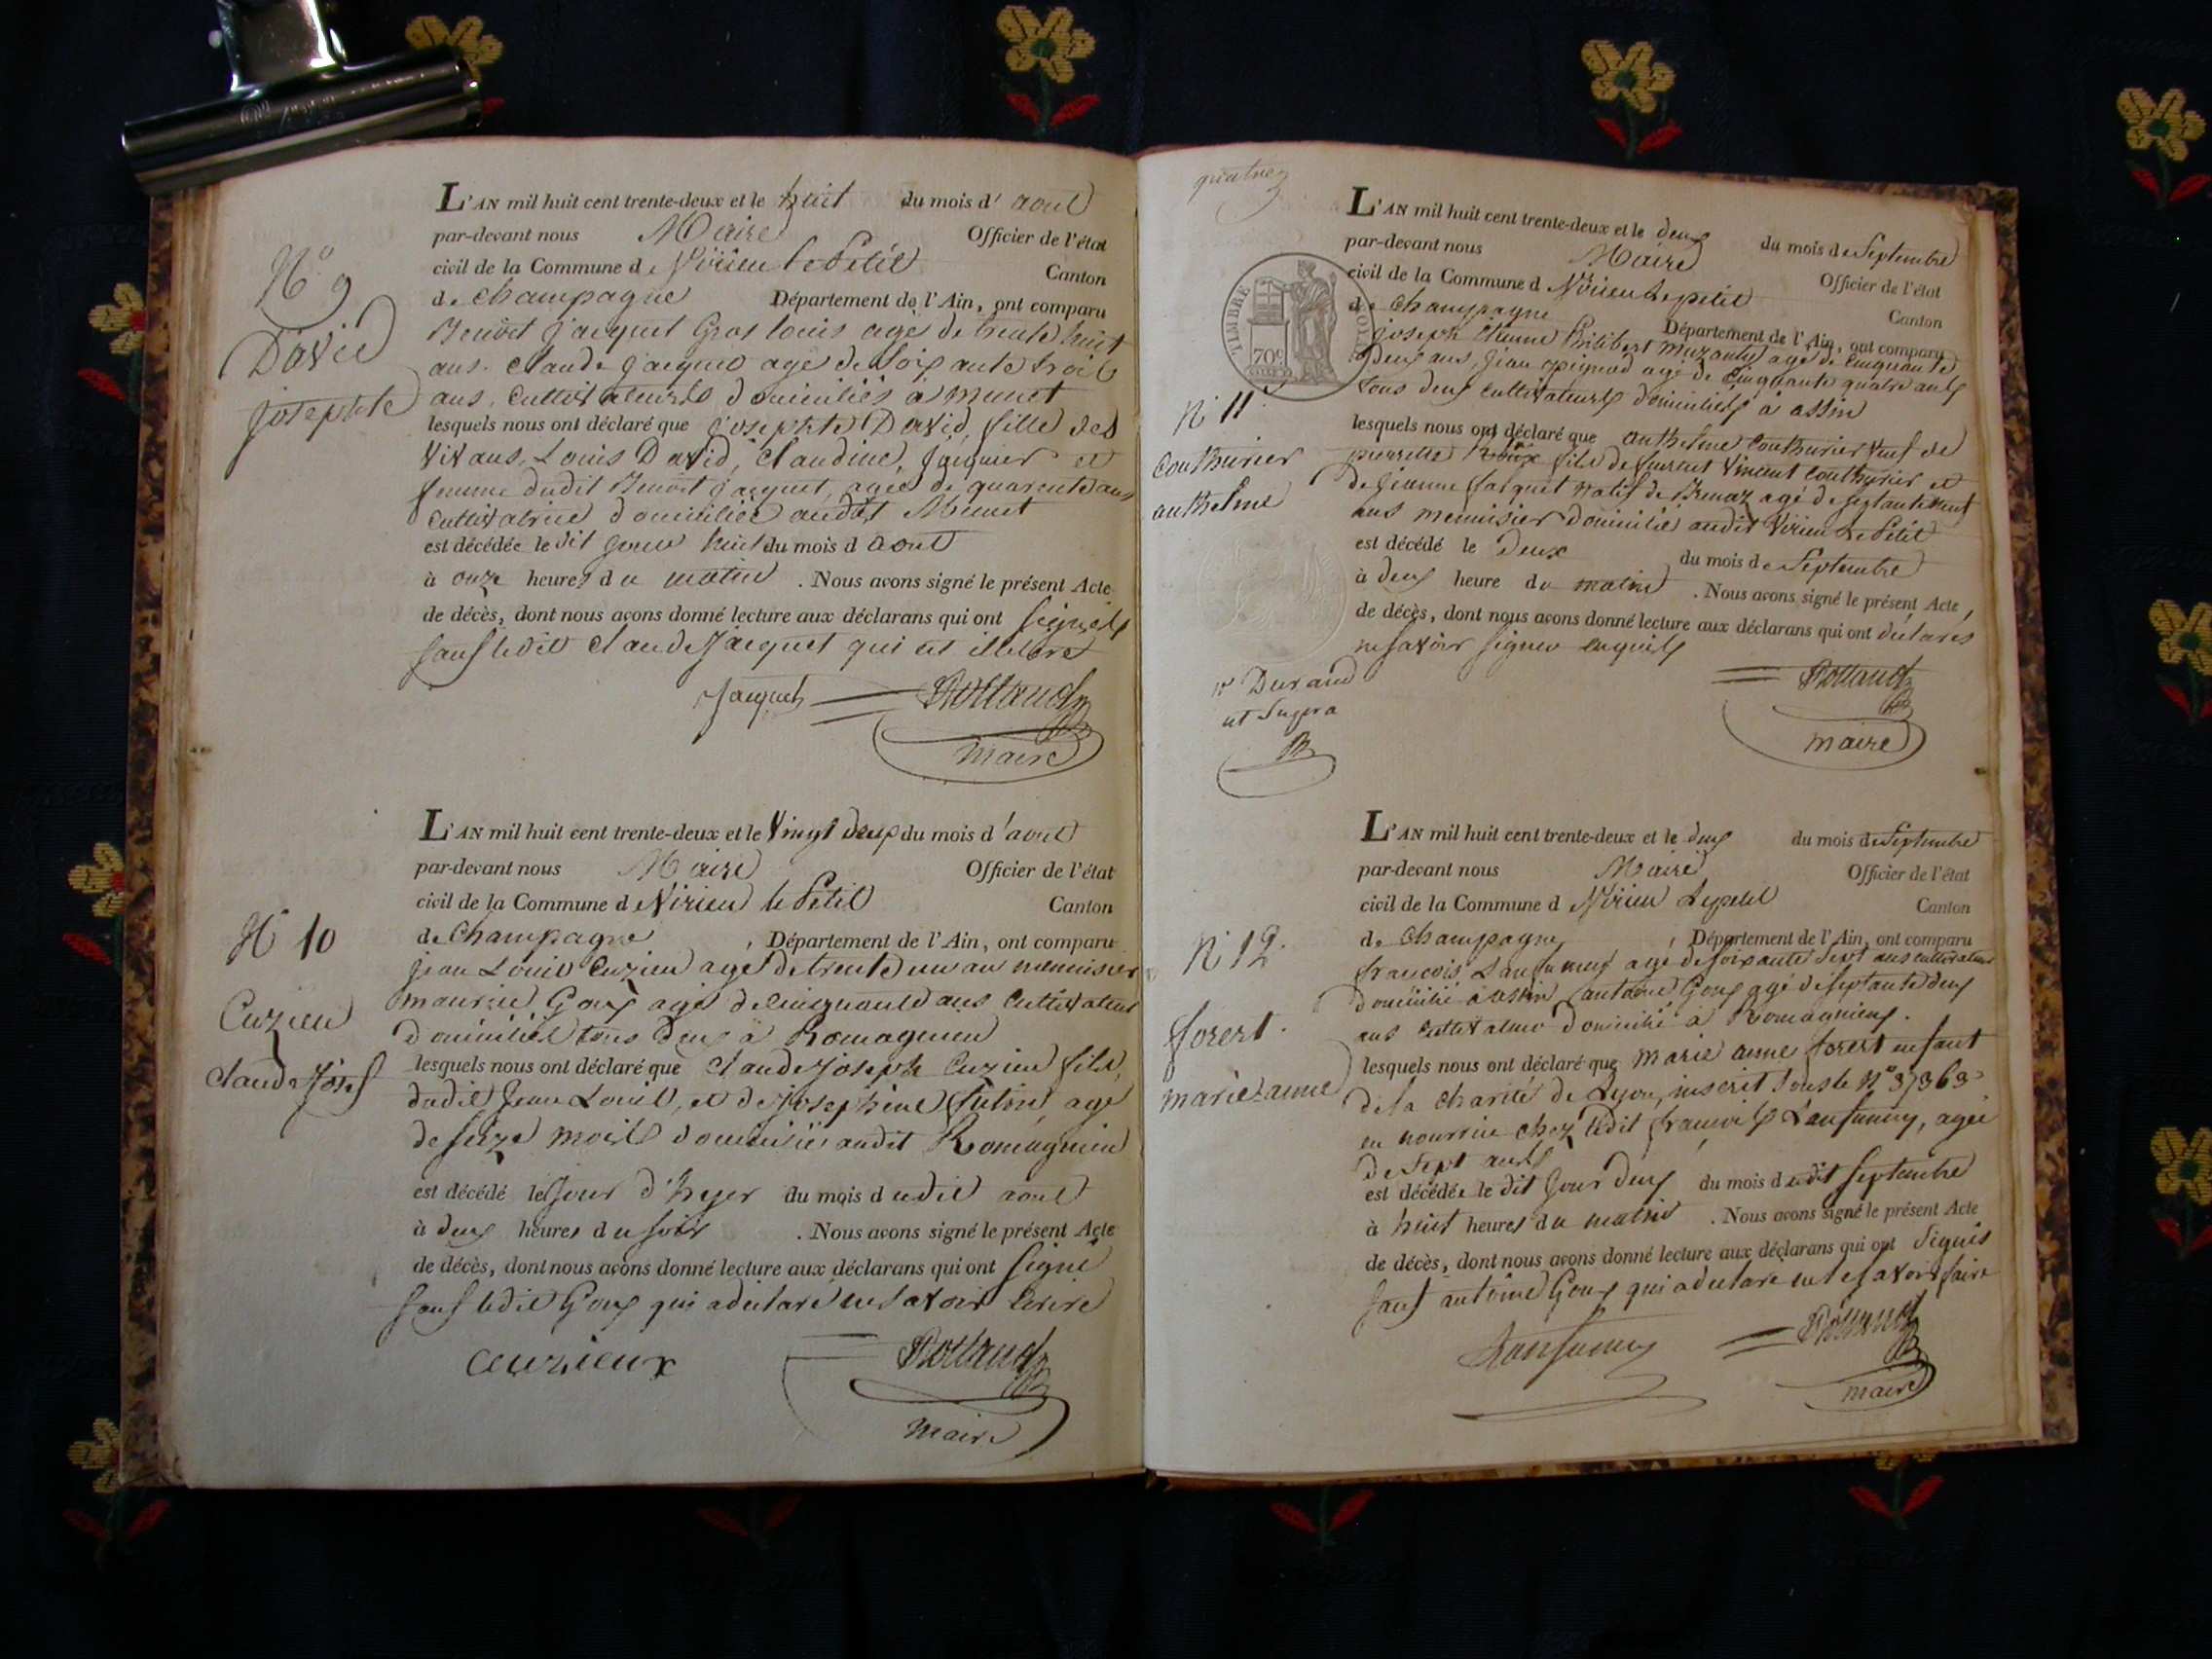 N° 9
David
josephte
L'AN mil huit cent trente-deux et le huit du mois d' aout
par-devant nous Maire Officier de l'état
civil de la Commune de Virieu le Petit Canton
de Champagne Département de l'Ain, ont comparu
Benoit jacquet Gros louis agés de trente huit
ans. Claude jacquet agé de soixante trois
ans, Cultivateurs domiciliés à Munet
lesquels nous ont déclaré que josephte David, fille des
vivans, Louis David, Claudine, et
femme dudit Benoit jacquet, agée de quarente ans
Cultivatrice domiciliée audit Munet
est décédée le dit jour huit du mois d aout
à onze heures du matin . Nous avons signé le présent Acte
de décès, dont nous avons donné lecture aux déclarans qui ont signés
sauf ledit Claude Jacquet qui est illeterè
Jacquet Rolland
maire
N° 10
Cuzieu
Claude Josef
L'AN mil huit cent trente-deux et le vingt deux du mois d'aout
par-devant nous Maire Officier de l'état
civil de la Commune de Virieu le Petit Canton
de Champagne , Département de l'Ain, ont comparu
jean Louis Cuzieu agé de trente un an menuisier
maurice Goux agé de cinquante ans Cultivateur
domiciliés tous deux à Romagnieu
lesquels nous ont déclaré que Claude Joseph Cuzieu fils,
dudit Jean Louis, et de Josephine agé
de seize mois domicilié audit Romagnieu
est décédé le Jour d'hyer du mois dudit aout
à deux heures du soir . Nous avons signé le présent Acte
de décès, dont nous avons donné lecture aux déclarans qui ont signé
sauf ledit Goux qui a déclaré ne savoir ecrire
Cuzieux Rolland
maire
quatre
TIMBRE ROYAL
70c
N° 11
Couthurier
anthelme
Durand
ut supra
L'AN mil huit cent trente-deux et le deux du mois de Septembre
par-devant nous Maire Officier de l'état
civil de la Commune d Virieu Le petit Canton
de Champagne Département de l'Ain, ont comparu
joseph Etienne Philibert agé de Cinquante
deux ans, jean agé de Cinquante quatre ans
tous deux cultivateurs domiciliés à assin
lesquels nous ont déclaré que anthelme Couthurier veuf de
pierrette Roux fils de Vincent Couthurier et
de jeanne jacquet natif de agé de septante
ans menuisier domicilié audit Virieu Le Petit
est décédé le Deux du mois de Septembre
à deux heure du matin . Nous avons signé le présent Acte,
de décès, dont nous avons donné lecture aux déclarans qui ont déclarés
ne savoir signer enquis
Rolland
maire
N° 12.
forert.
marie anne
L'AN mil huit cent trente-deux et le deux du mois de Septembre
par-devant nous Maire Officier de l'état
civil de la Commune d Virieu Le petit Canton
de Champagne , Département de l'Ain, ont comparu
francois agé de soixante sept ans cultivateur
domicilié à assin, antoine Goux agé de septante deux
ans cultivateur domicilié à Romagnieu.
lesquels nous ont déclaré que marie anne forert enfant
de la charité de Lyon, inscrit sous le N° 37363
en nourrice chez ledit francois, agée
de sept ans
est décédée le dit jour deux du mois dudit septembre
à huit heures du matin . Nous avons signé le présent Acte
de décès, dont nous avons donné lecture aux déclarans qui ont signés
sauf antoine Goux qui a declaré ne le savoir faire
Rolland
maire